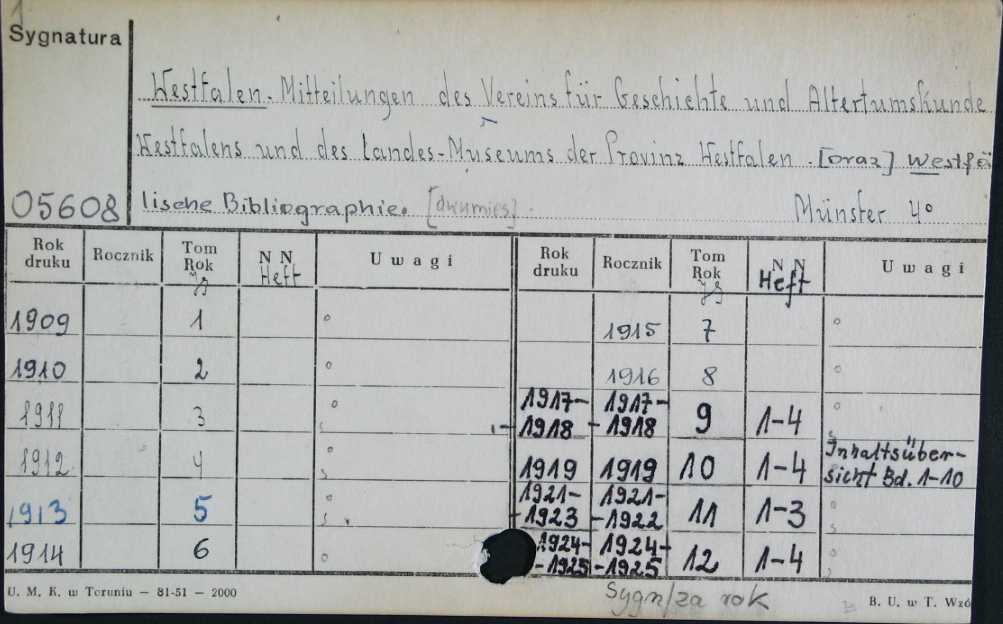 1
Sygnatura
Westfalen. Mitteilungen des Vereins für Geschichte und Altertumskunde
Westfalens und des Landes-Museums der Provinz Westfalen. [oraz] Westfä
05608 lische Bibliographie. [dwumies]. Münster 4°
Rok druku Rocznik Tom Rok Jg N N Heft Uwagi Rok druku Rocznik Tom Rok Jg N N Heft Uwagi
1909 1 1915 7
1910 2 1916 8
1911 3 1917-1918 1917-1918 9 1-4
1912 4 1919 1919 10 1-4 Inhaltsüber-sicht Bd. 1-10
1913 5 1921-1923 1921-1922 11 1-3
1914 6 1924-1925 1924-1925 12 1-4
U. M. K. w Toruniu — 81-51 — 2000 Sygn/za rok B. U. w T. Wzó